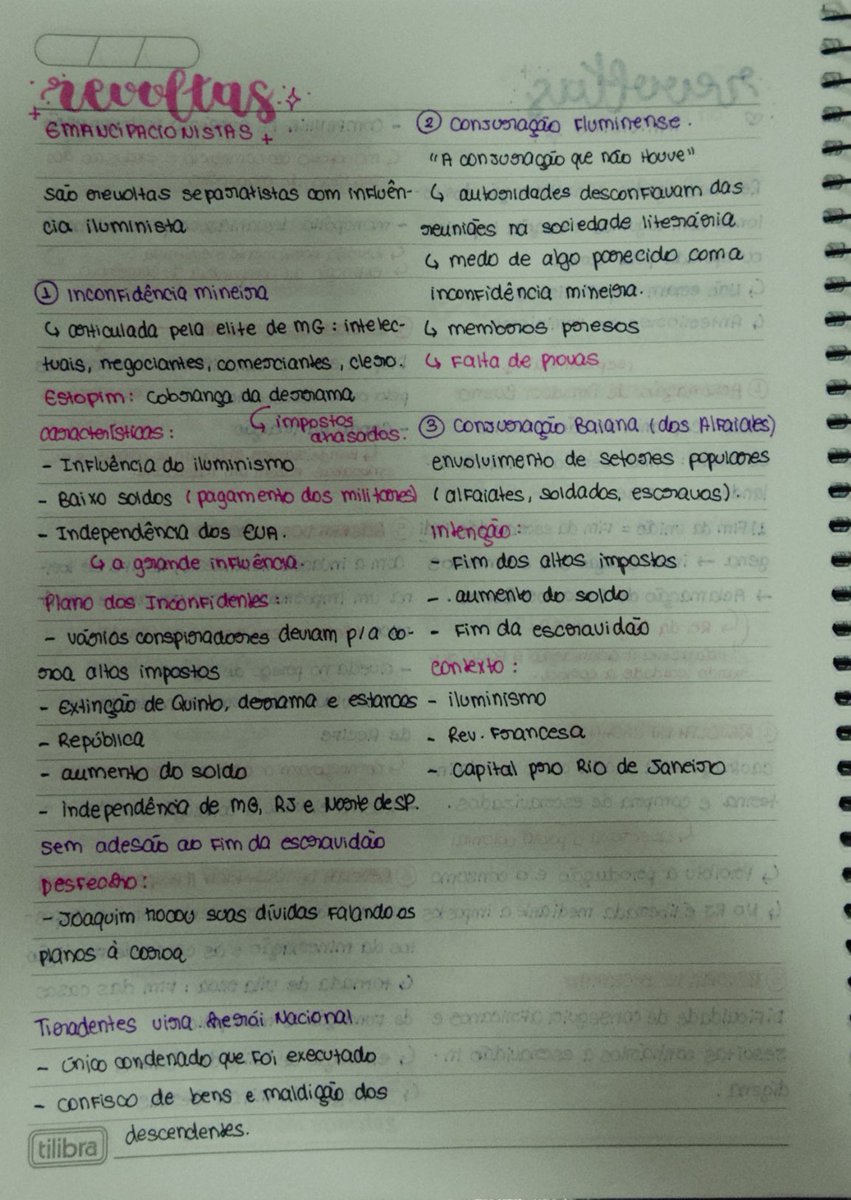 revoltas
EMANCIPACIONISTAS
são revoltas separatistas com influên-
cia iluminista
① Inconfidência mineira
↳ articulada pela elite de MG: intelec-
tuais, negociantes, comerciantes, clero.
Estopim: cobrança da derrama
↳ impostos
atrasados.
características:
- Influência do iluminismo
- Baixo soldos (pagamento dos militares)
- Independência dos EUA.
↳ a grande influência.
Plano dos Inconfidentes:
- vários conspiradores deviam p/ a co-
roa altos impostos
- Extinção de Quinto, derrama e estancos
- República
- aumento do soldo
- independência de MG, RJ e Norte de SP.
sem adesão ao fim da escravidão
Desfecho:
- Joaquim trocou suas dívidas falando os
planos à coroa
Tiradentes vira herói Nacional
- único condenado que foi executado
- confisco de bens e maldição dos
descendentes.
② Conjuração Fluminense.
"A conjuração que não houve"
↳ autoridades desconfiavam das
reuniões na sociedade literária
↳ medo de algo parecido com a
inconfidência mineira.
↳ membros presos
↳ Falta de provas
③ Conjuração Baiana (dos Alfaiates)
envolvimento de setores populares
(alfaiates, soldados, escravos).
intenção:
- Fim dos altos impostos
- aumento do soldo
- Fim da escravidão
contexto:
- iluminismo
- Rev. Francesa
- Capital pro Rio de Janeiro
tilibra